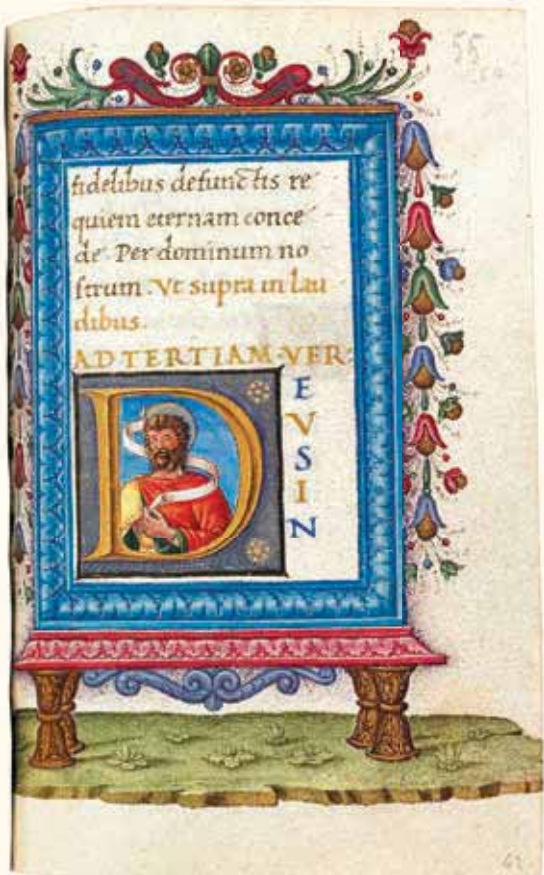 55
fidelibus defunctis re
quiem eternam conce
de Per dominum no
strum. Vt supra in lau
dibus.
AD TERTIAM·VER:
D
E
V
S
I
N
62